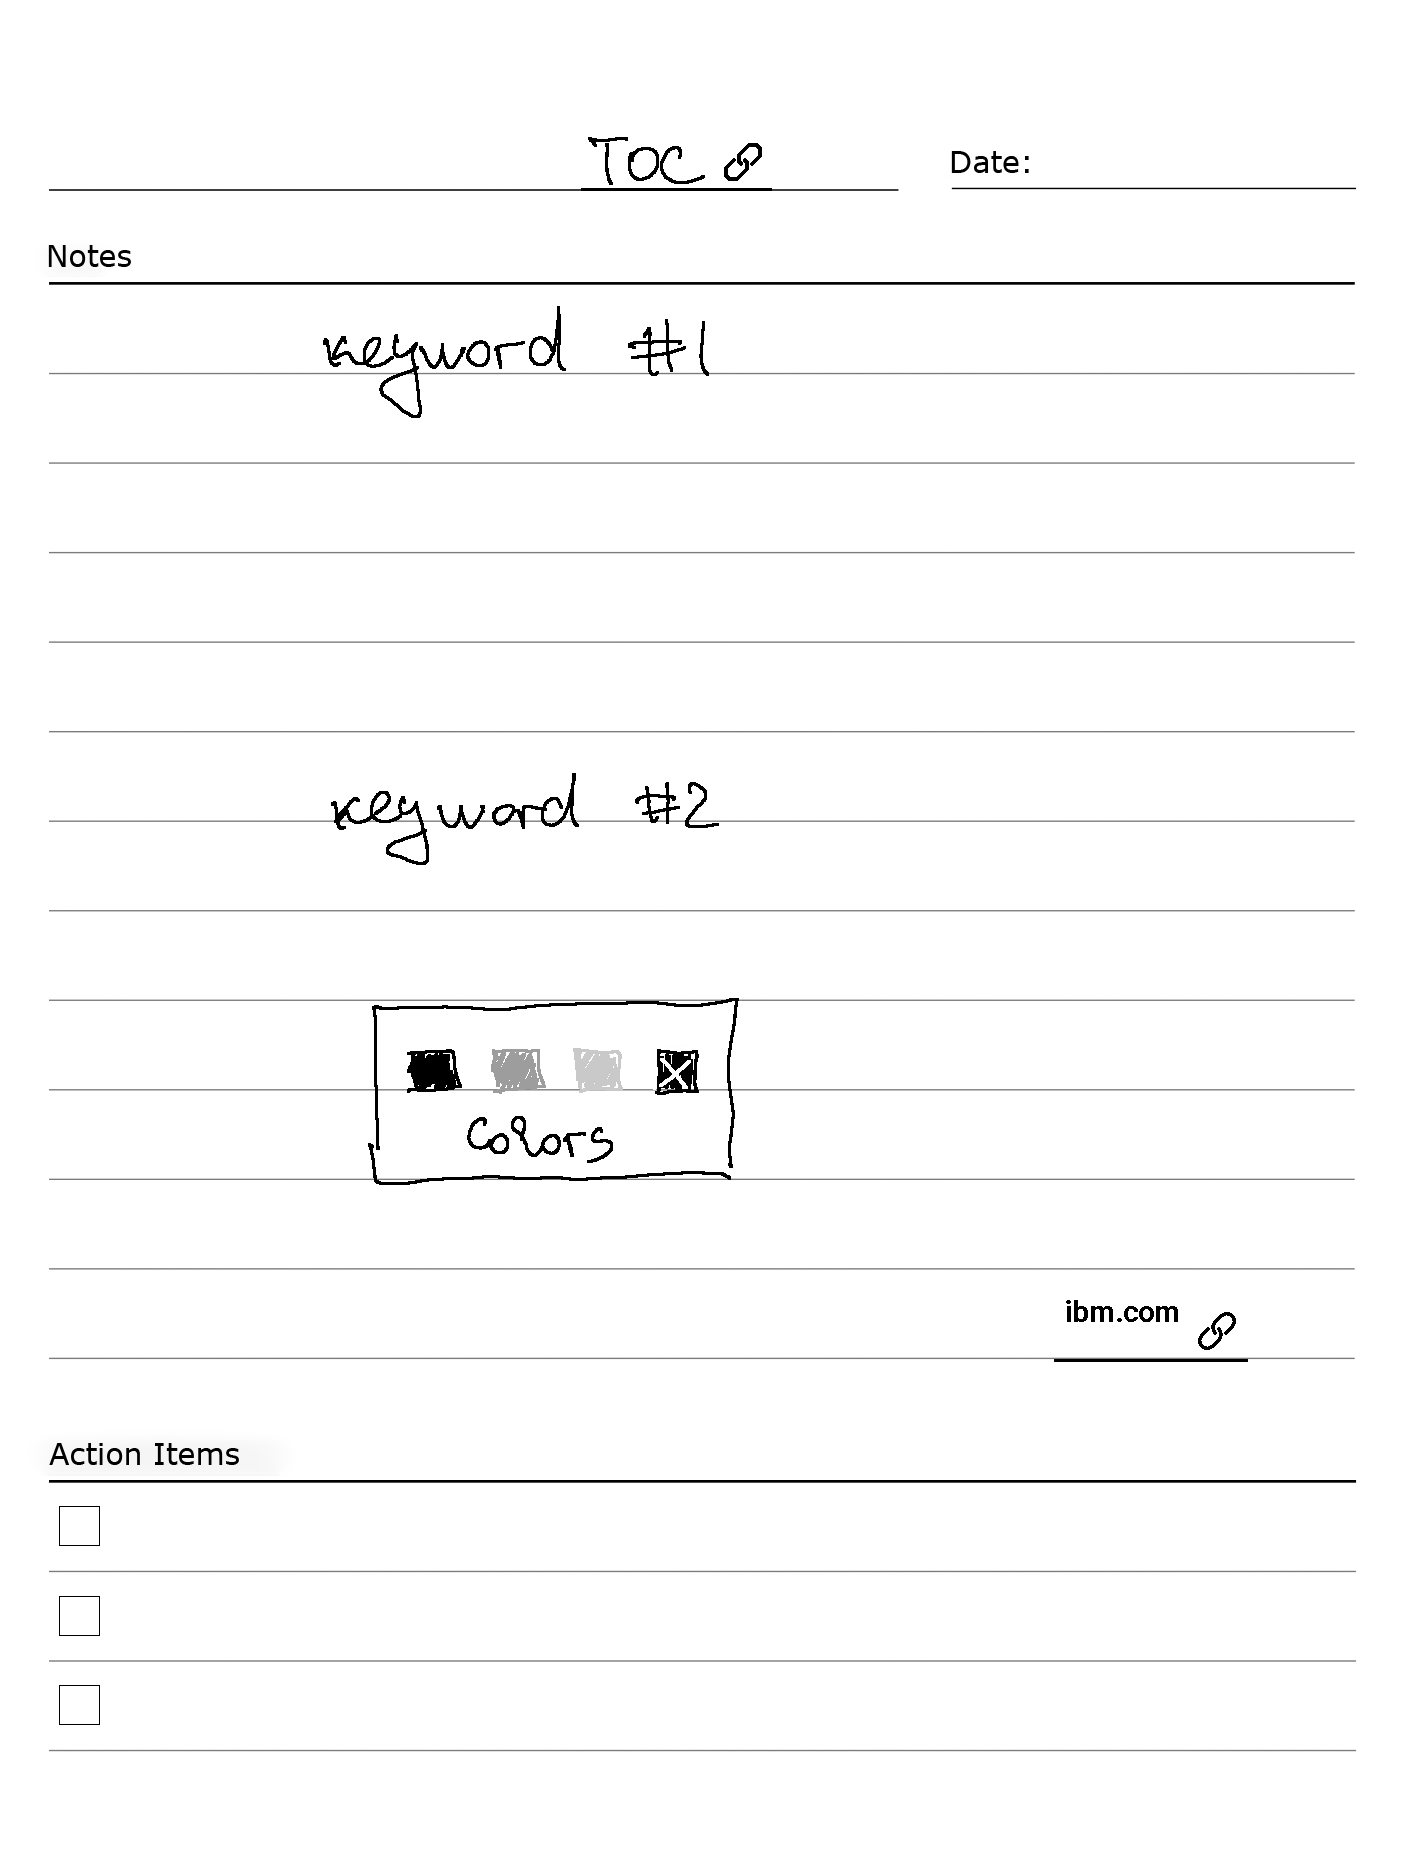 TOC
Date:
Notes
keyword #1
keyword #2
Colors
ibm.com
Action Items